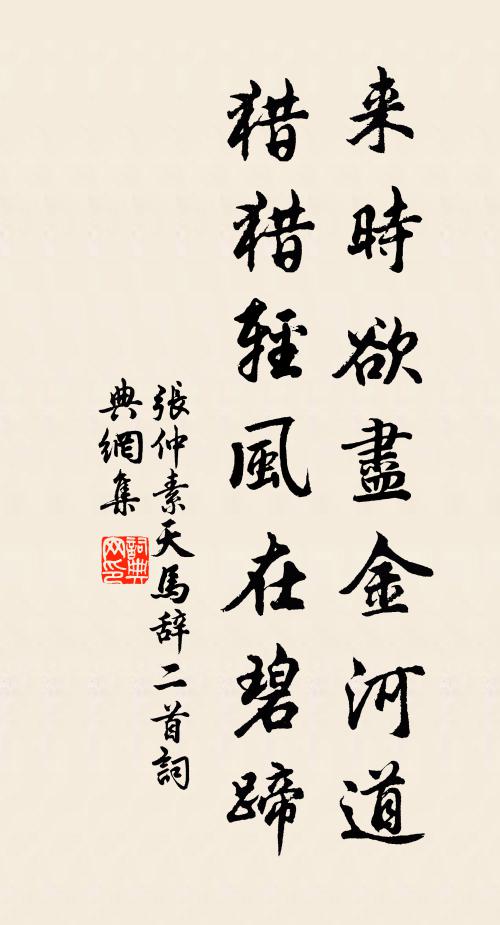 来時欲盡金河道
猎猎輕風在碧蹄
張仲素天馬辞二首詞
典網集
詞典
网印